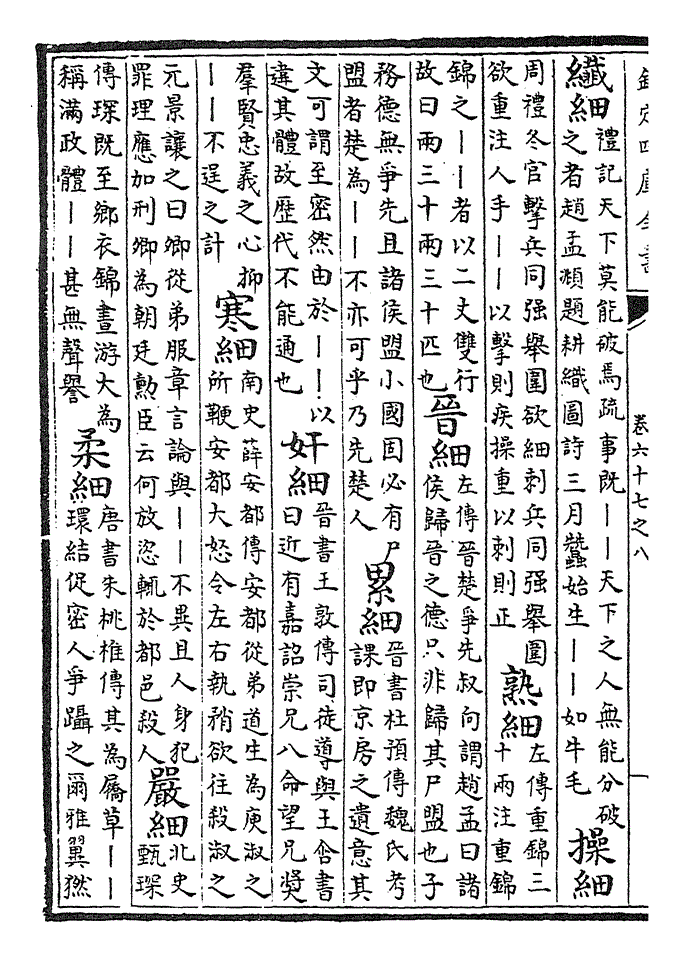 欽定四庫全書
卷六十七之八
纖細禮記天下莫能破焉疏事既——天下之人無能分破
之者趙孟頫題耕織圖詩三月蠶始生——如牛毛操細
周禮冬官擊兵同强舉圍欲細刺兵同强舉圍
欲重注人手——以擊則疾操重以刺則正熟細左傳重錦三
十兩注重錦
錦之——者以二丈雙行
故曰兩三十兩三十匹也晉細左傳晉楚爭先叔向謂趙孟曰諸
侯歸晉之德只非歸其尸盟也子
務德無爭先且諸侯盟小國固必有尸
盟者楚為——不亦可乎乃先楚人累細晉書杜預傳魏氏考
課即京房之遺意其
文可謂至密然由於——以
違其體故歴代不能通也奸細晉書王敦傳司徒導與王含書
曰近有嘉詔崇兄八命望兄奬
羣賢忠義之心抑
——不逞之計寒細南史薛安都傳安都從弟道生為庾淑之
所鞭安都大怒令左右執矟欲往殺淑之
元景讓之曰卿從弟服章言論與——不異且人身犯
罪理應加刑卿為朝廷勲臣云何放恣輒於都邑殺人嚴細北史
甄琛
傳琛既至鄉衣錦晝游大為
稱滿政體——甚無聲譽柔細唐書朱桃椎傳其為屩草——
環結促密人爭躡之爾雅翼